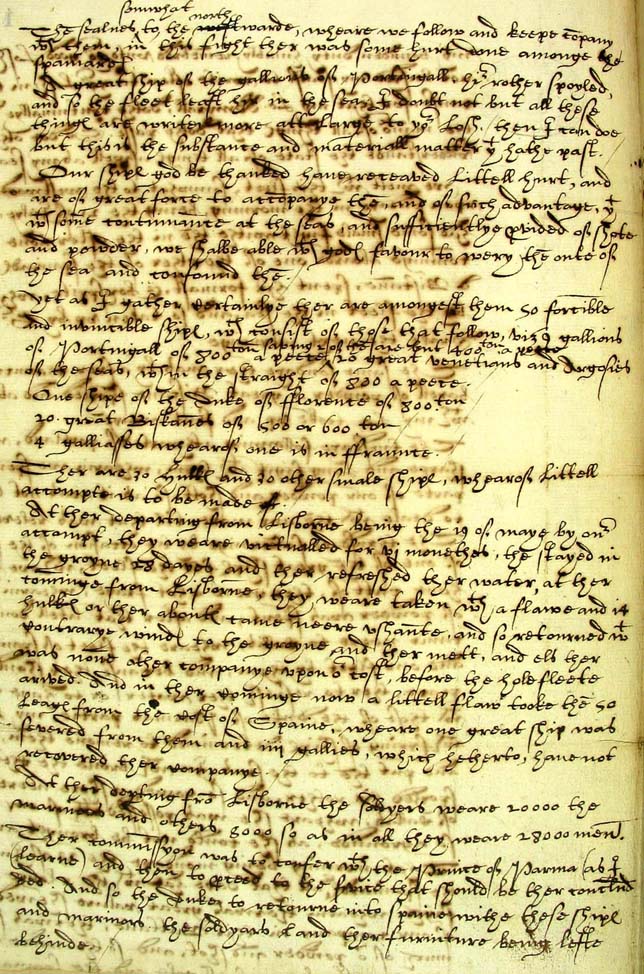 somwhat north
The sealnes to the warde, wheare we follow and keepe company
wth them, in this fight ther was some hurt done amonge the
spaniard
A great ship of the gallions of Portingall, hir rother spoyled,
and so the fleet leaft hir in the sea. I doubt not but all these
thingl are writen more att Large to yor Losp. then I can doe
but this is the substance and materiall matter yt hathe past.
Our shipl god be thanked have receaved Littell hurt, and
are of great force to accompanye the, and of such advantage, yt
wth some continuance at the seas, and sufficientlye pvided of shote
and powder, we shalbe able wth godl favour to wery the oute of
the sea and confound the.
yet as I gather certainlye ther are amongest them 50 forcible
and invincible shipl, wch consist of those that follow, viz 9 gallions
of Portingall of 800 ton a peece, saving 2 of the are but 400 ton a peece
20 great venetians and Argosies
of the seas, wthin the straight of 800 a peece.
One shipe of the Duke of fflorence of 800 ton
20. great Biskanes of 500 or 600 ton
4 galliasses whearof one is in ffraunce.
Ther are 30 hulkl and 30 other smale shipl, whearof Littell
accompte is to be made
At ther departing from Lisborne being the 19 of maye by our
accompt, they weare victualled for vj monethes, the stayed in
the groyne 28 dayes and ther refreshed ther water, at ther
cominge from Lisborne, they weare taken wth a flawe and 14
hulkl or ther aboutl came neere ushante, and so retourned wth
contrarye windl to the groyne and ther mett, and els ther
was none other companye upon or cost, before the hole fleete
arived. And in ther cominge now a littell flaw tooke the 50
Leagl from the cost of Spaine, wheare one great ship was
severed from them and iiij gallies, which hetherto, have not
recovered ther companye.
At ther depting fro Lisborne the soldyers weare 20000 the
mariners and others 8000 so as in all they weare 28000 men.
Ther commission was to confer wth the Prince of Parma (as I
Learne) and then to pceed to the service that should be ther conclud
ded. And so the Duke to retourne into spaine withe these shipl
and mariners. the soldyars and ther furniture being lefte
behinde.